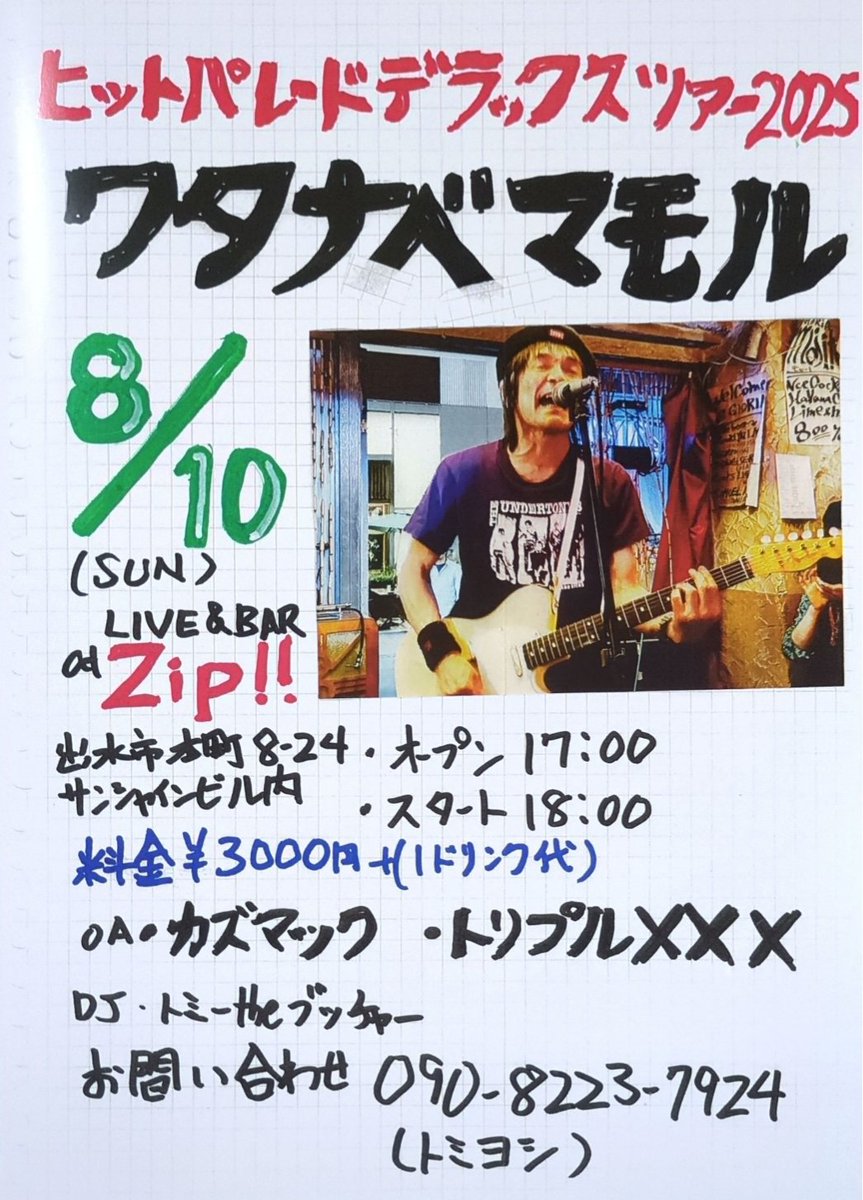 ヒットパレードデラックスツアー2025
ワタナベマモル
8/10
(SUN)
LIVE&BAR
at Zip!!
出水市本町8-24
サンシャインビル内
・オープン 17:00
・スタート 18:00
料金¥3000円+(1ドリンク代)
OA・カズマック ・トリプルXXX
DJ・トミーtheブッチャー
お問い合わせ 090-8223-7924
(トミヨシ)
THE UNDERTONES
8:00